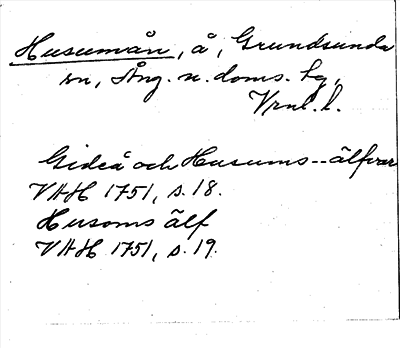 Husumån, å, Grundsunda
sn, Ång. n. doms. hg,
Vrnl. l.
Gideå och Husums--älfvar
VAH 1751, s. 18.
Husoms älf
VAH 1751, s. 19.